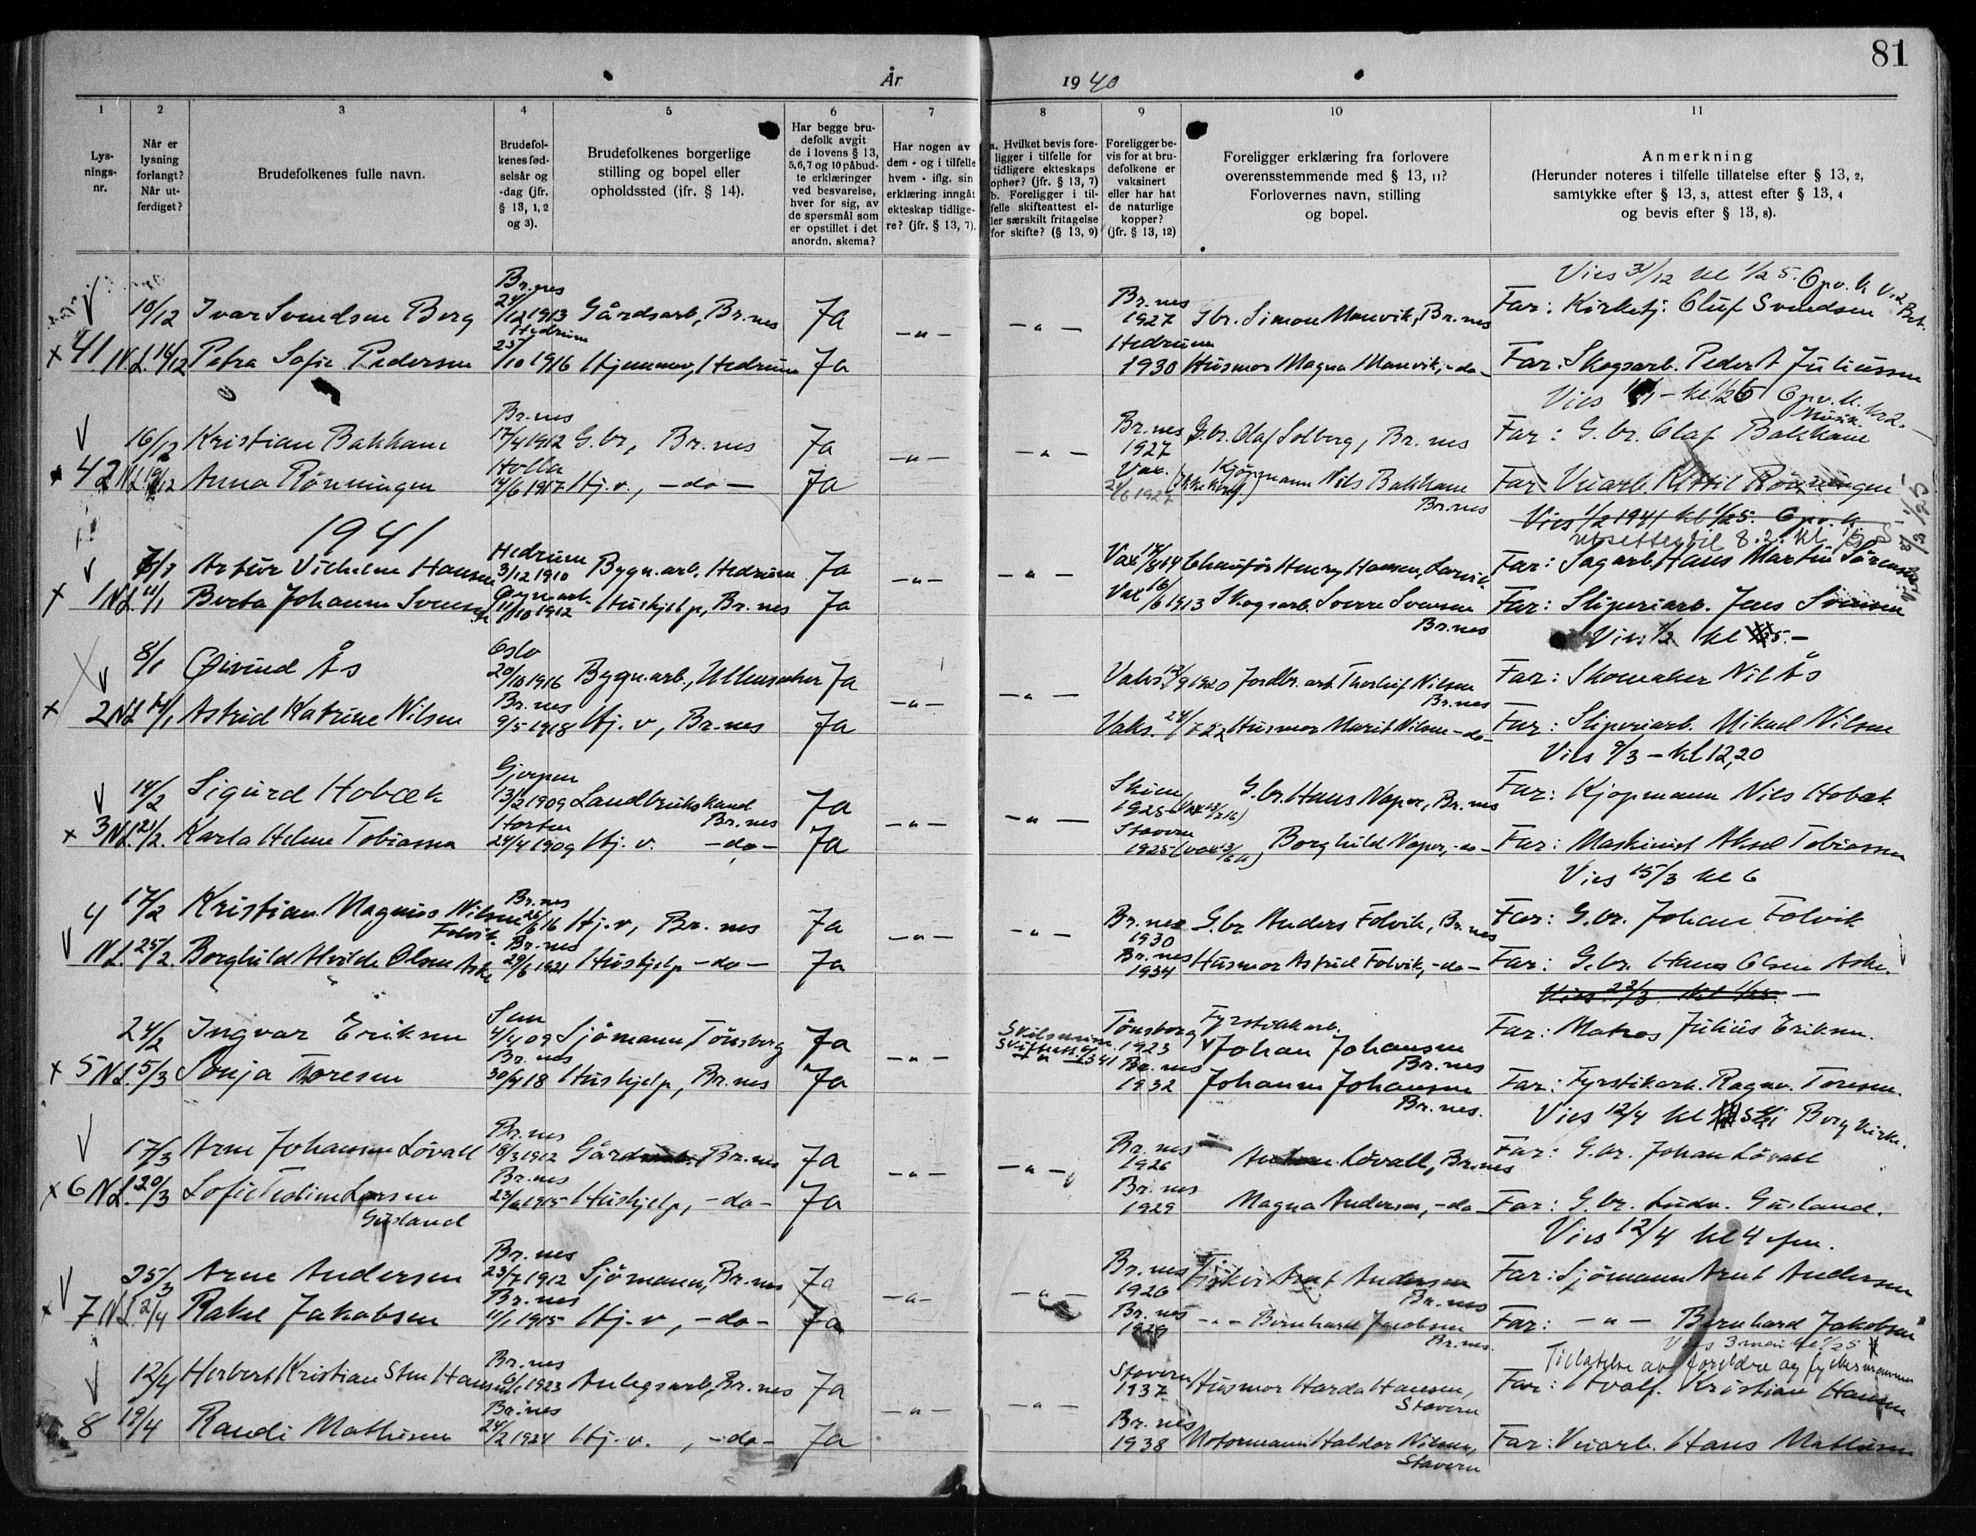 81
År 1940
1 2 3 4 5 6 7 8 9 10 11
Lys-
nings-
nr.
Når er
lysning
forlangt?
Når ut-
ferdiget?
Brudefolkenes fulle navn.
Brudefol-
kenes fød-
selsår og
-dag (jfr.
§ 13, 1, 2
og 3).
Brudefolkenes borgerlige
stilling og bopel eller
opholdssted (ifr. § 14).
Har begge bru-
defolk avgit
de i lovens § 13,
5,6,7 og 10 påbud-
te erklæringer
ved besvarelse,
hver for sig, av
de spørsmål som
er opstillet i det
anordn. skema?
Har nogen av
dem - og i tilfelle
hvem - iflg. sin
erklæring inngåt
ekteskap tidlige-
re? (jfr. § 13, 7).
a. Hvilket bevis fore-
ligger i tilfelle for
tidligere ekteskaps
ophør? (jfr. § 13, 7)
b. Foreligger i til-
felle skifteattest el-
ler særskilt fritagelse
for skifte? (§ 13, 9)
Foreligger be-
vis for at bru-
defolkene er
vaksinert
eller har hat
de naturlige
kopper?
(jfr. § 13, 12)
Foreligger erklæring fra forlovere
overensstemmende med § 13, 11?
Forlovernes navn, stilling
og bopel.
Anmerkning
(Herunder noteres i tilfelle tillatelse efter § 13, 2,
samtykke efter § 13, 3, attest efter § 13, 4
og bevis efter § 13, 8).
Vies 31/12 kl 1/2 5.
10/12 Ivar Svendsen Berg Br.nes 24/12 1913 Gårdsarb, Br.nes Ja —„— —„— Br.nes 1927 Gbr. Simon Manvik, Br.nes Far: Kirketj. Oluf Svendsen
41 N.L. 14/12 Petra Sofie Pedersen Hedrum 25/10 1916 Hjemmev, Hedrum Ja Hedrum 1930 Husmor Magna Manvik, -do- Far: Skogsarb. Peder A Juliussen
16/12 Kristian Bakkane Br.nes 17/4 1912 G.br, Br.nes Ja —„— —„— Br.nes 1927 G.br. Olaf Solberg, Br.nes Far: G.br. Olaf Bakkane
42 N.L. 19/12 Anna Rönningen Holla 14/6 1917 Hj.v., —do— Ja Vax. 21/6 1927 Kjøpmann Nils Bakkane Br.nes Far: Vuarb. Kittil Rönningen
1941
Vies 1/2 1941 kl 1/2 5.
utsettes til 8.2. kl
7/1 Artur Vilhelm Hansen Hedrum 3/12 1910 Bygn.arb, Hedrum Ja —„— —„— Vax Chauffør Henry Hansen, Larvik Far: Sagarb. Hans Martin Sörensen
1 N.L. 11/1 Berta Johanne Svensen 11/10 1912 Hushjelp, Br.nes Ja 16/6 1913 Skogsarb. Sverre Svensen Br.nes Far: Sliperiarb. Jens Svensen
Vies 1/2 kl 5.—
8/1 Øivind Ås Oslo 20/10 1916 Bygn.arb., Ullensaker Ja —„— —„— Vaks. 12/9 1920 Jordbr.arb. Thorleif Nilsen Br.nes Far: Skomaker Nil Ås
2 N.L. 14/1 Astrid Katrine Nilsen Br.nes 9/5 1918 Hj.v, Br.nes Ja Vaks. Husmor Marit Nilsen -do- Far: Sliperiarb. Mikael Nilsen
Vies 9/3 — kl 12,20
14/2 Sigurd Hobæk Gjerpen 13/2 1909 Landbrukskand Br.nes Ja —„— —„— Skien 1925 G.br. Hans Napor, Br.nes Far: Kjøpmann Nils Hobæk
3 N.L. 21/2. Karla Helene Tobiassen Horten 24/4 1909 Hj.v. —do— Ja Stavern 1925 Borghild Napor, -do- Far: Maskinist Aksel Tobiassen
Vies 15/3 kl 6
4 17/2 Kristian Magnus Nilsen Folvik Br.nes 26/6 16 Hj.v, Br.nes Ja —„— —„— Br.nes 1930 G.br. Anders Folvik, Br.nes Far: G.br. Johan Folvik
N.L. 25/2. Borghild Alvilde Olsen Aske Br.nes 29/6 1921 Hushjelp —do— Ja Br.nes 1934 Husmor Astrid Folvik, -do- Far: G.br. Hans Olsen Aske.
Vies 22/3 kl 1/2 5. —
24/2 Ingvar Eriksen Sem 4/1 09 Sjømann, Tönsberg Ja —„— Tönsberg 1923 Fyrstikkarb. Johan Johansen Br.nes Far: Matros Julius Eriksen.
5 N.L. 5/3 Sonja Thoresen Br.nes 30/4 18 Hushjelp, Br.nes Ja Br.nes 1932 Johanne Johansen Br.nes. Far: Fyrstikark. Ragnv. Toresen.
Vies 12/4 kl 5 i Berg kirke.
17/3 Arne Johansen Lövall Br.nes 18/3 1912 Br.nes Ja —„— —„— Br.nes 1926 Lövall, Br.nes Far: G.br. Johan Lövall
6 N.L. 20/3 Gusland Br.nes 1915 Hushjelp, —do— Ja Br.nes 1929 Magna Andersen, -do- Far: G.br. Ludv. Gusland.
Vies 12/4 kl 4 em.
25/3 Arne Andersen Br.nes 23/7 1912 Sjømann, Br.nes Ja —„— —„— Br.nes 1926 Fisker Arnt Andersen Br.nes Far: Sjømann Arnt Andersen
7 N.L. 2/4 Rakel Jakobsen Br.nes 11/1 1915 Hj.v, —do— Ja Br.nes 1929 —„— Bernhard Jacobsen Br.nes. Far: —„— Bernhard Jakobsen
Vies 3 mai kl 1/2 5
Tillatelse av foreldre og fylkesmannen
12/4 Herbert Kristian Sten Hansen Br.nes 1923 Anlegsarb, Br.nes Ja —„— —„— Stavern 1937 Husmor Harda Hansen, Stavern Far: Hvalf. Kristian Hansen
8 19/4 Randi Mathisen Br.nes 24/2 1924 Hj.v. , —do— Ja Br.nes 1938 Motormann Haldor Nilsen, Stavern Far: Vuarb. Hans Mathisen